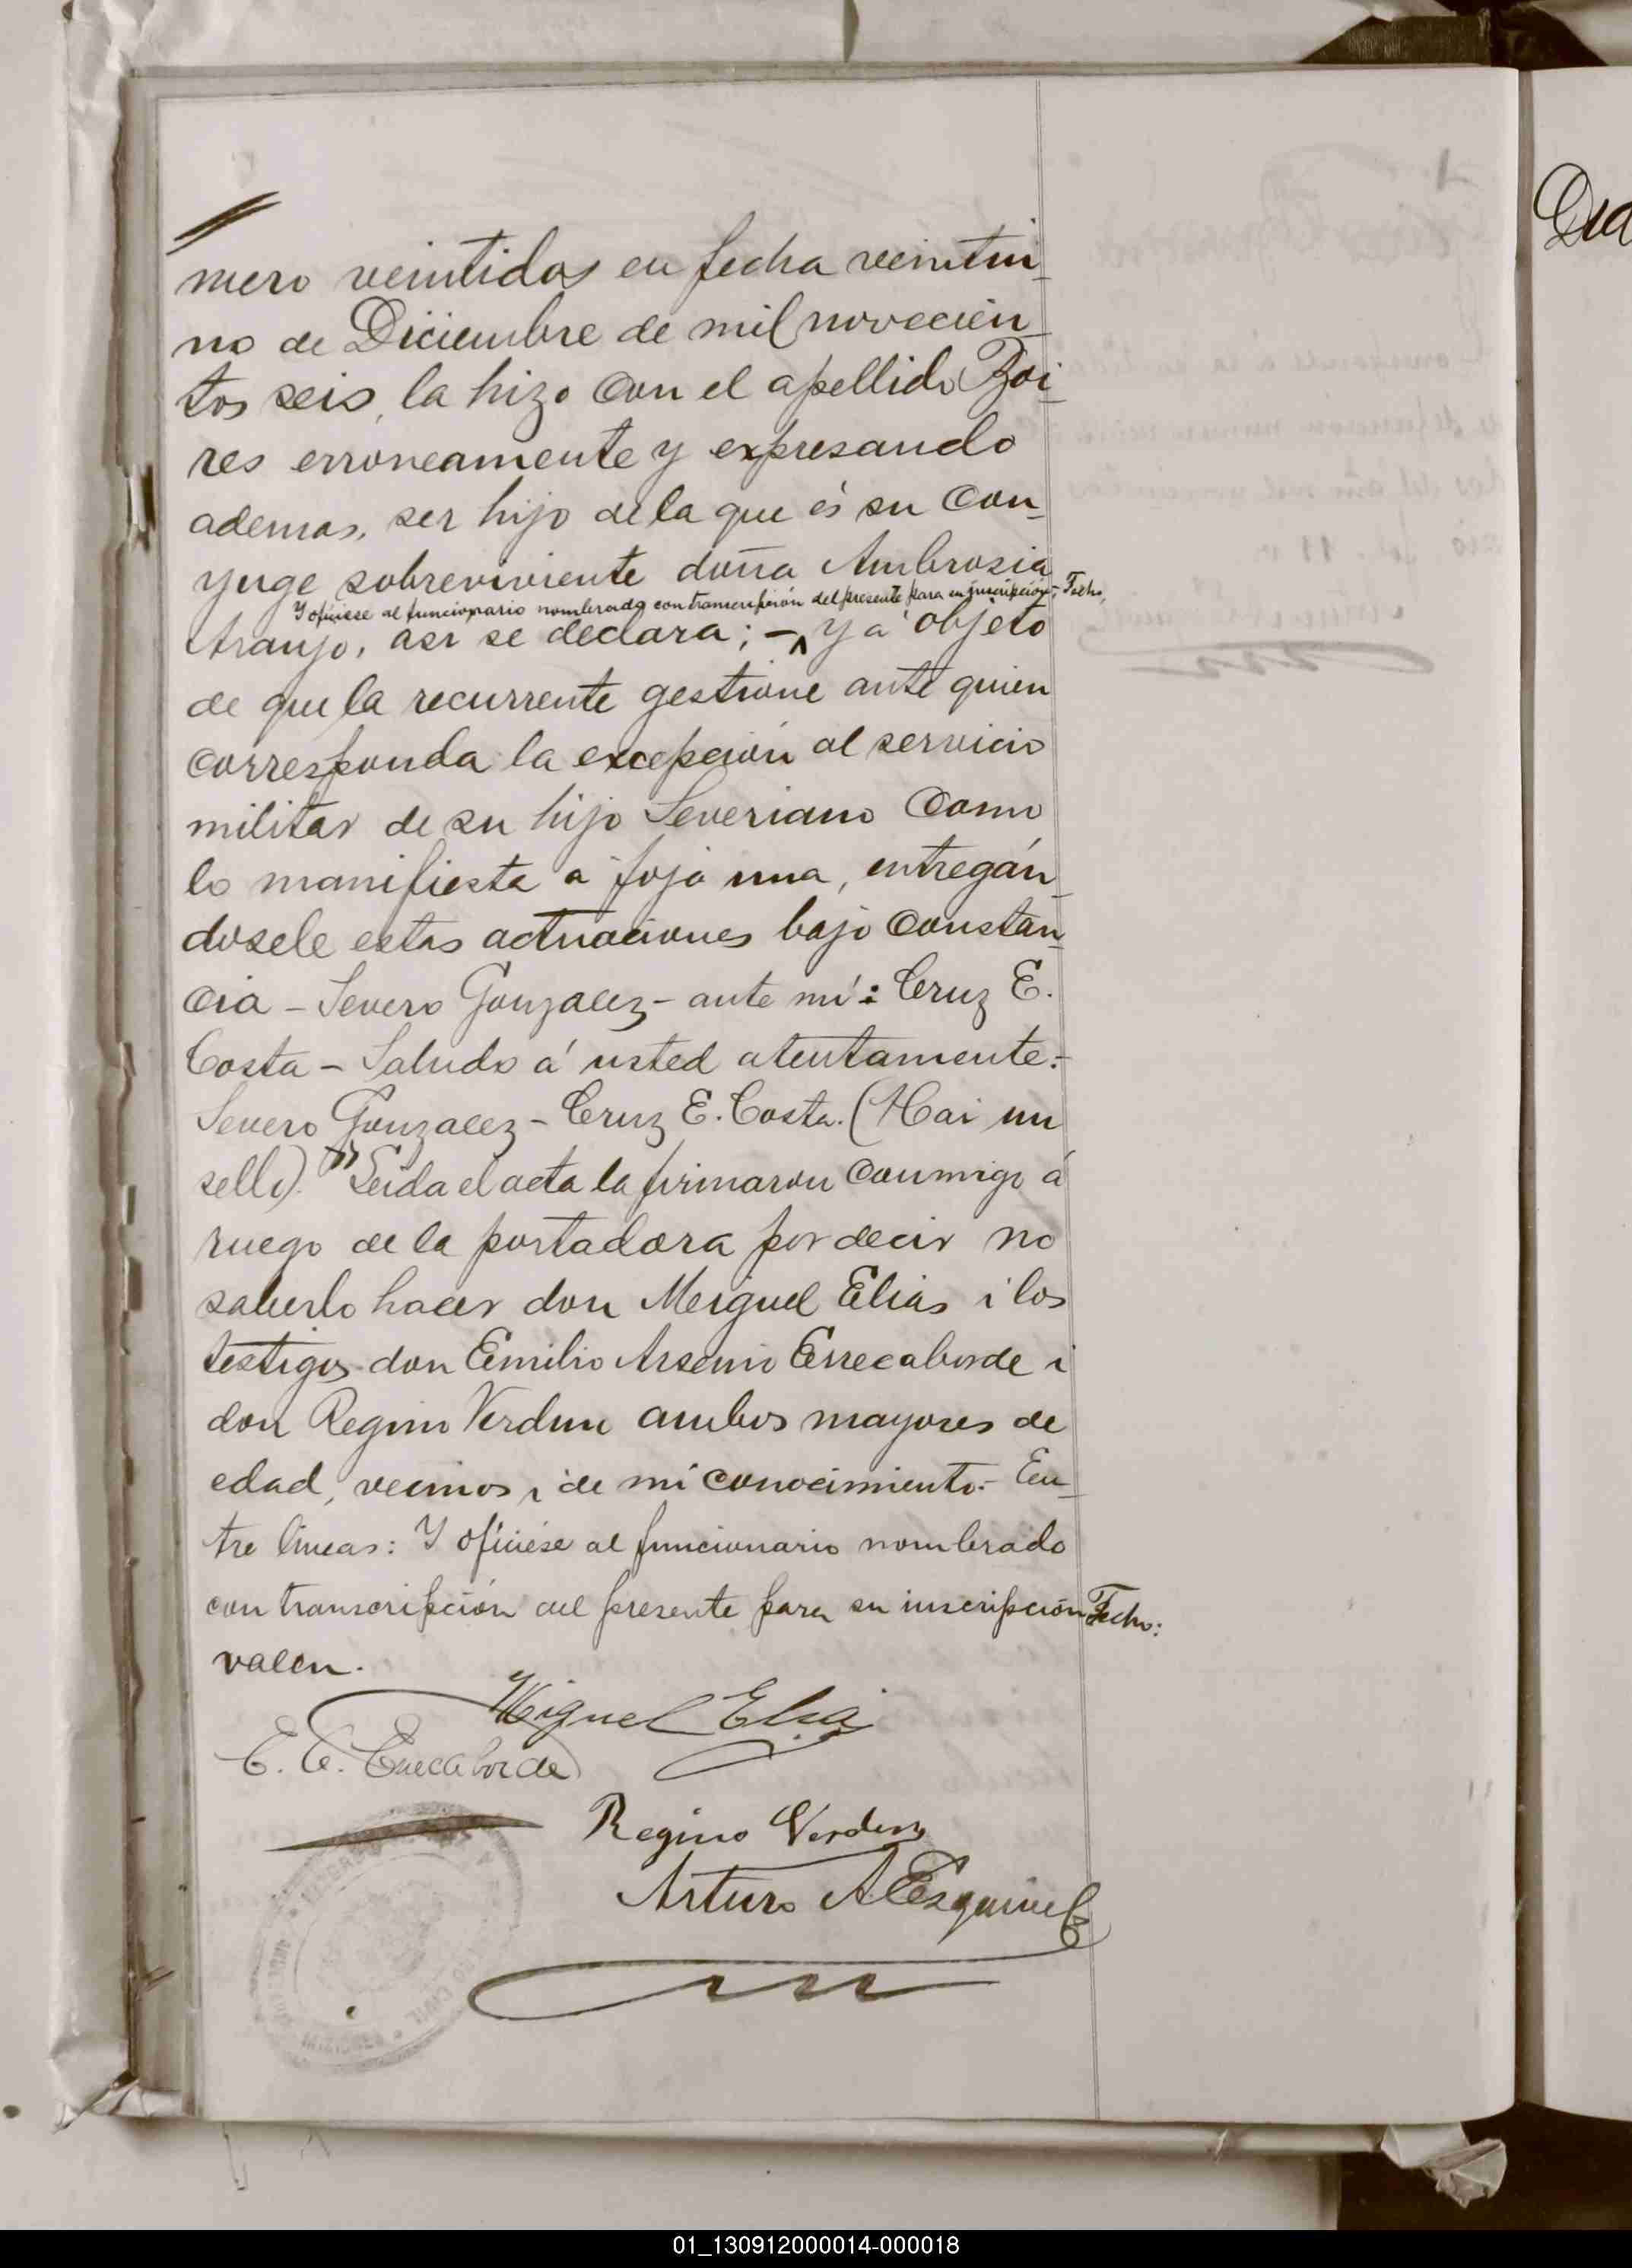 mero veintidos en fecha veintiu-
no de Diciembre de mil novecien-
tos seis, la hizo con el apellido Boi-
res erroneamente y expresando
ademas, ser hijo de la que és su con-
yuge sobreviviente doña Ambrosia
Y ofíciese al funcionario nombrado con transcripción del presente para su inscripción - Fecho,
Araujo, asi se declara; - y á objeto
de que la recurrente gestione ante quien
corresponda la excepción al servicio
militar de su hijo Severiano como
lo manifiesta á foja una, entregán-
dosele estas actuaciones bajo constan-
cia - Severo Gonzalez - ante mi: Cruz E.
Costa - Saludo á usted atentamente:-
Severo Gonzalez - Cruz E. Costa. (Hai un
sello)." Leida el acta la firmaron conmigo á
ruego de la portadora por decir no
saberlo hacer don Meiguel Elias i los
testigos don Emilio Arsenio Errecaborde i
don Regino Verdun ambos mayores de
edad, vecinos i de mi conocimiento.- En-
tre líneas: Y ofíciese al funcionario nombrado
con transcripción del presente para su inscripción Fecho:
valen.
Miguel Elias
E. A. Errecaborde
Regino Verdun
Arturo A Esquivel
CIVIL
01_130912000014-000018